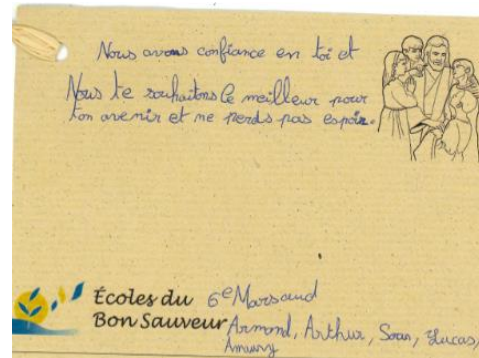 Nous avons confiance en toi et
Nous te souhaitons le meilleur pour
ton avenir et ne perds pas espoir.
Écoles du
Bon Sauveur
6e Marsaud
Armand, Arthur, Soan, Lucas,
Amaury